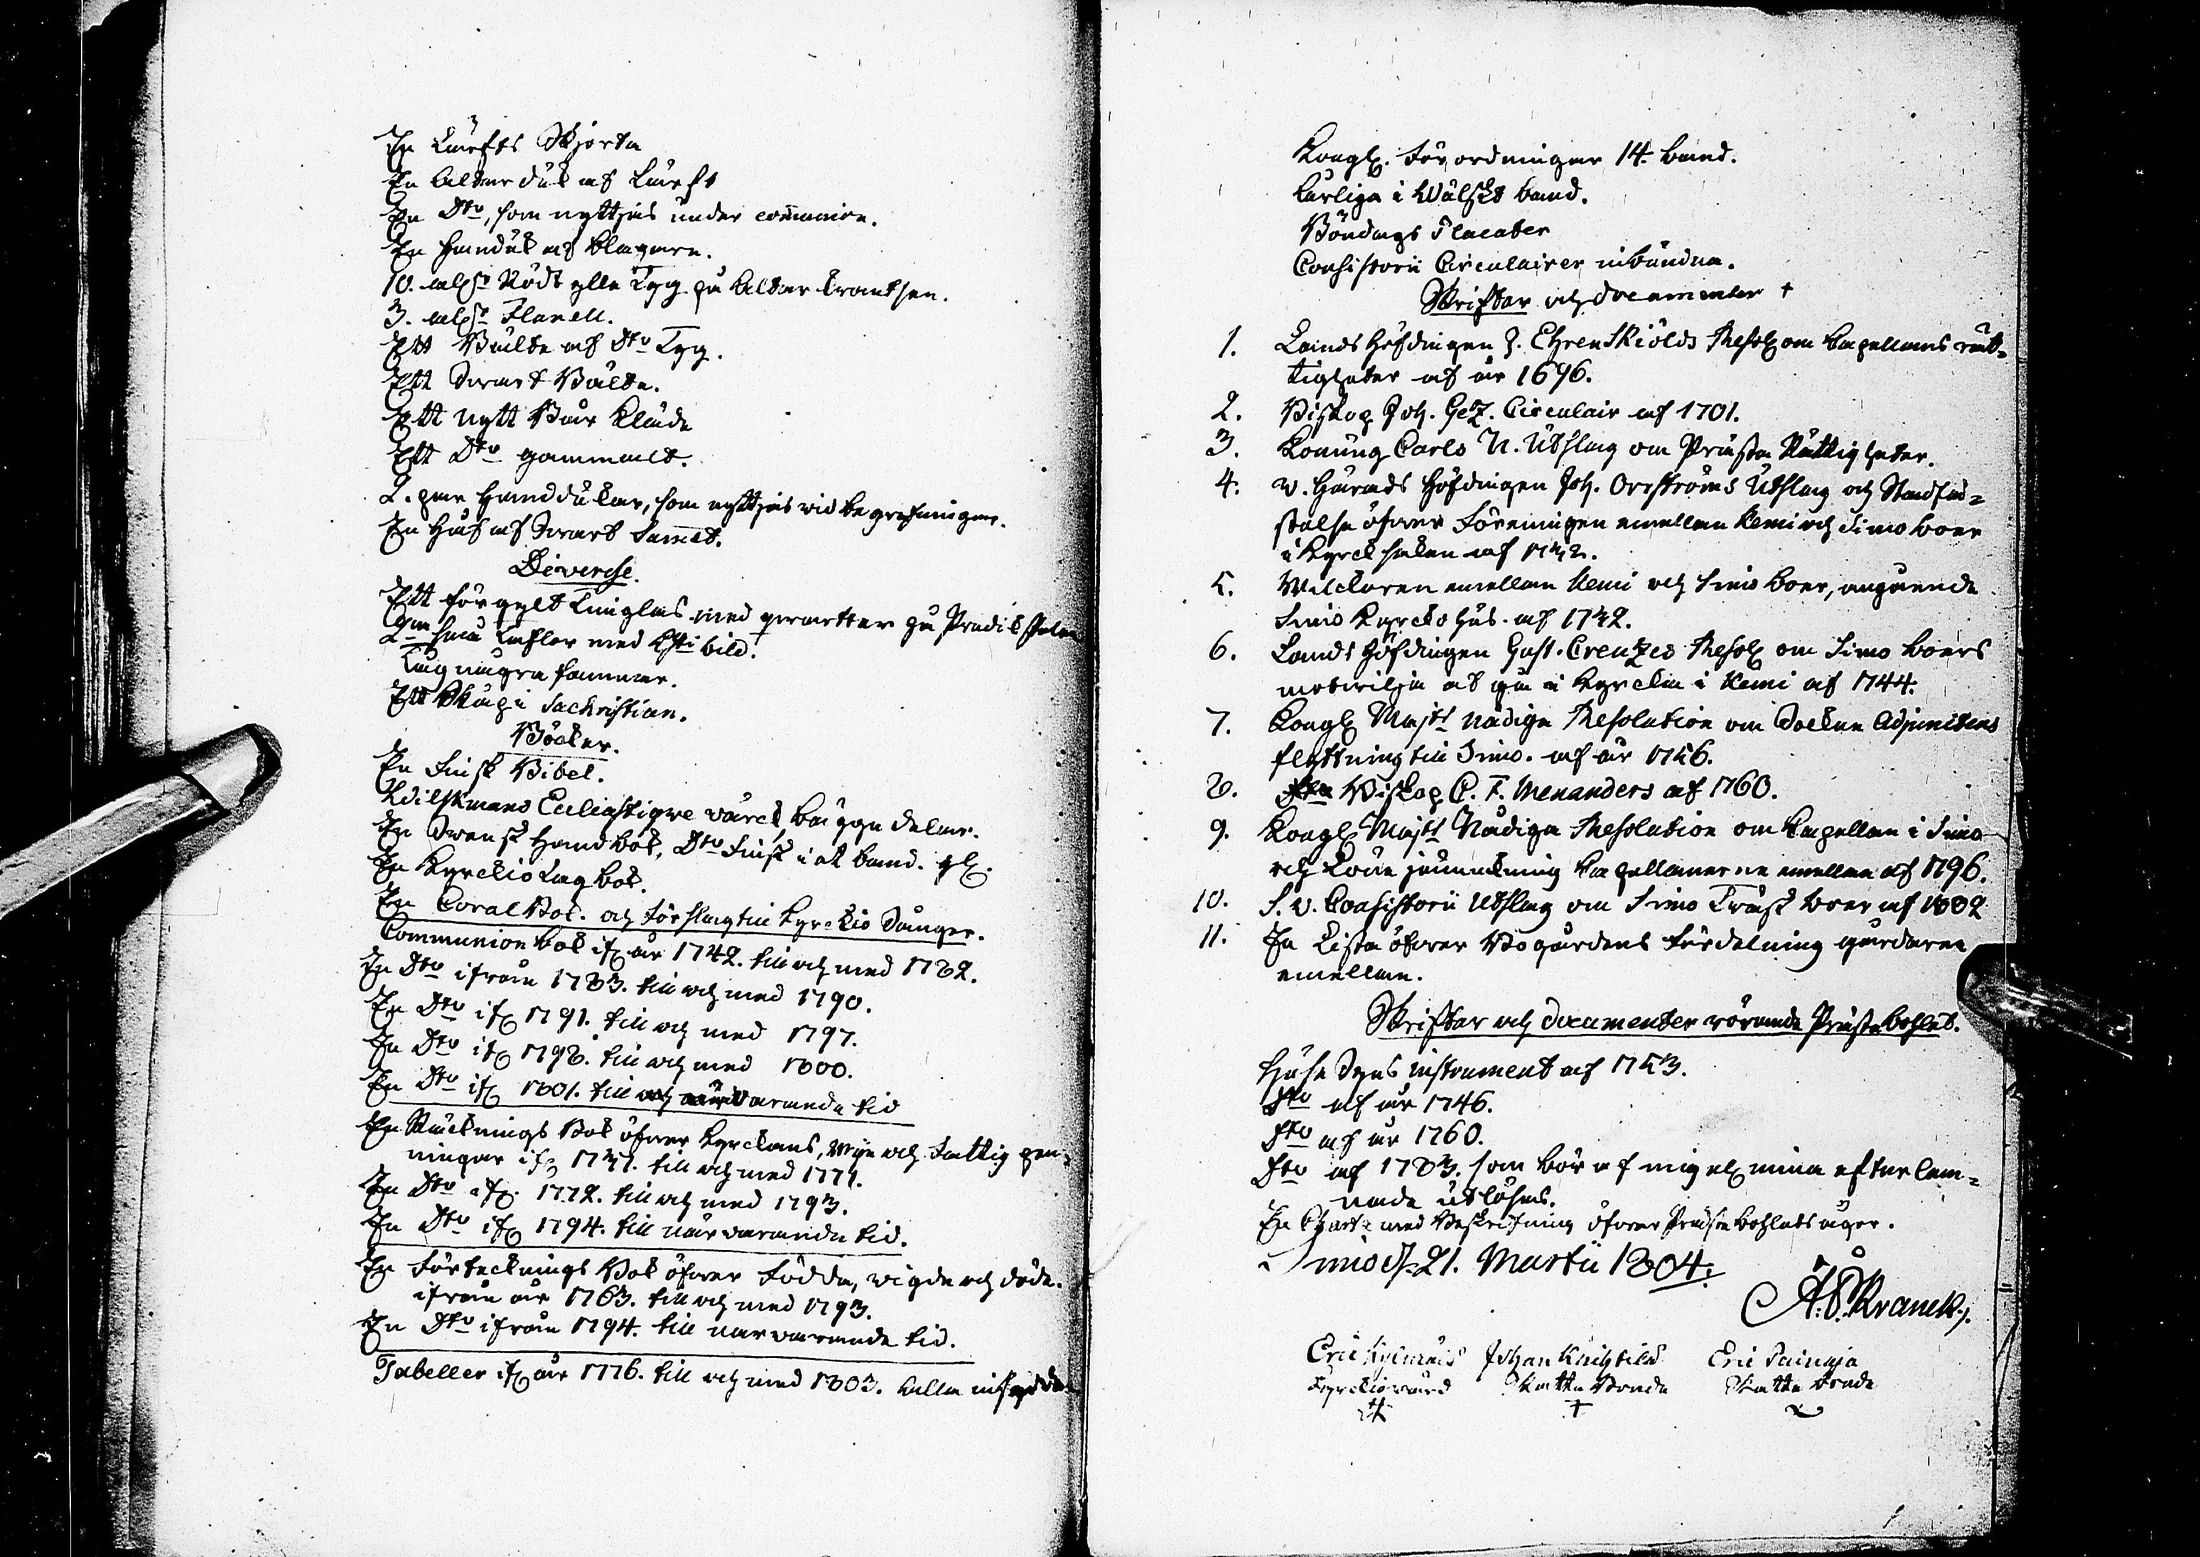 En Lärfts Skjorta
En Altar duk af Lärft
En Dto, som nyttjas under communion.
En Handuk af Blagarn.
10. aln:r Rödt ylle Tyg på Altar krantsen.
3. aln:r Flanell.
Ett Bälte af Dto Tyg.
Ett Swart Bälte.
Ett nytt Bår Kläde
Ett Dto gammalt.
2. par Handdukar, som nyttjas vid begrafningar.
En Håf af Swart Sammet.
Diverse.
Ett förgylt Timglas med qwartter på Predikstolen
2ne små Taflor med Xsti bild.
Tåg några famnar.
Ett Skåp i Sachristian.
Böcker.
En Finsk Bibel.
Wilskmans Eccliastique värck bägge delar.
En Swensk Handbok, Dto Finsk i et band.
En Kyrckio Lag bok.
En Coral Bok. och förslag till Kyrckio Sånger.
Communion bok ifr. år 1742. till och med 1782.
En Dto ifrån 1783. till och med 1790.
En Dto ifr. 1791. till och med 1797.
En Dto ifr. 1798. till och med 1800.
En Dto ifr. 1801. till närvarande tid
En Räcknings Bok öfwer Kyrckans, Wijn och Fattig pen-
ningar ifr. 1747. till och med 1771.
En Dto ifr. 1772. till och med 1793.
En Dto ifr. 1794. till närvarande tid.
En Förtecknings Bok öfwer Födda, vigda och döda.
ifrån år 1763. till och med 1793.
En Dto ifrån 1794. till närvarande tid.
Tabeller ifr. år 1776. till och med 1803.
Kongl. Förordningar 14. band.
Bönedags Placater
Consistorii Circulairer inbundna.
Skrifter och documenter
1. Landshöfdingen J. Ehrenskiölds Resol. om Capellans rät-
tigheter af år 1696.
2. Biskop Joh. Gez. Circulair af 1701.
3. Konung Carls Utslag om Prästa Rättigheter.
4. v. Härads Höfdingen Joh. Orrströms Utslag och Stadfäs-
telse öfwer Föreningen emellan Kemi och Simo boer
i Kyrck saken af 1742.
5. Wilckoren emellan Kemi och Simo boer, angående
Simo Kyrcko hus. af 1742.
6. Lands Höfdingen Gust. Creutzes Resol. om Simo boers
motwilja at gå i Kyrckia i Kemi af 1744.
7. Kongl. Majts Nådiga Resolution om Socken Adjunctens
flyttning till Simo. af år 1756.
8. Biskop C. F. Menanders af 1760.
9. Kongl. Majts Nådiga Resolution om Capellan i Simo
och Löne jämckning Capellanerne emellan af 1796.
10. S. v. Consistorii Utslag om Simo Träsk boer af 1802
11. En Lista öfwer Bogårdens fördelning gårdarne
emellan.
Skrifter och documenter rörande Prästebohlet.
Huse Syns instrument af 1753.
Dto af år 1746.
Dto af år 1760.
Dto af 1783. som bör af mig el. mina efterlem-
nade utlösas.
En Charta med Beskrifning öfwer Prästebohlets ägor.
Simo d. 21. Martii 1804.
Kranck.
Eric Johan Eric
Kyrckiowärd Skatte Bonde Skatte bonde